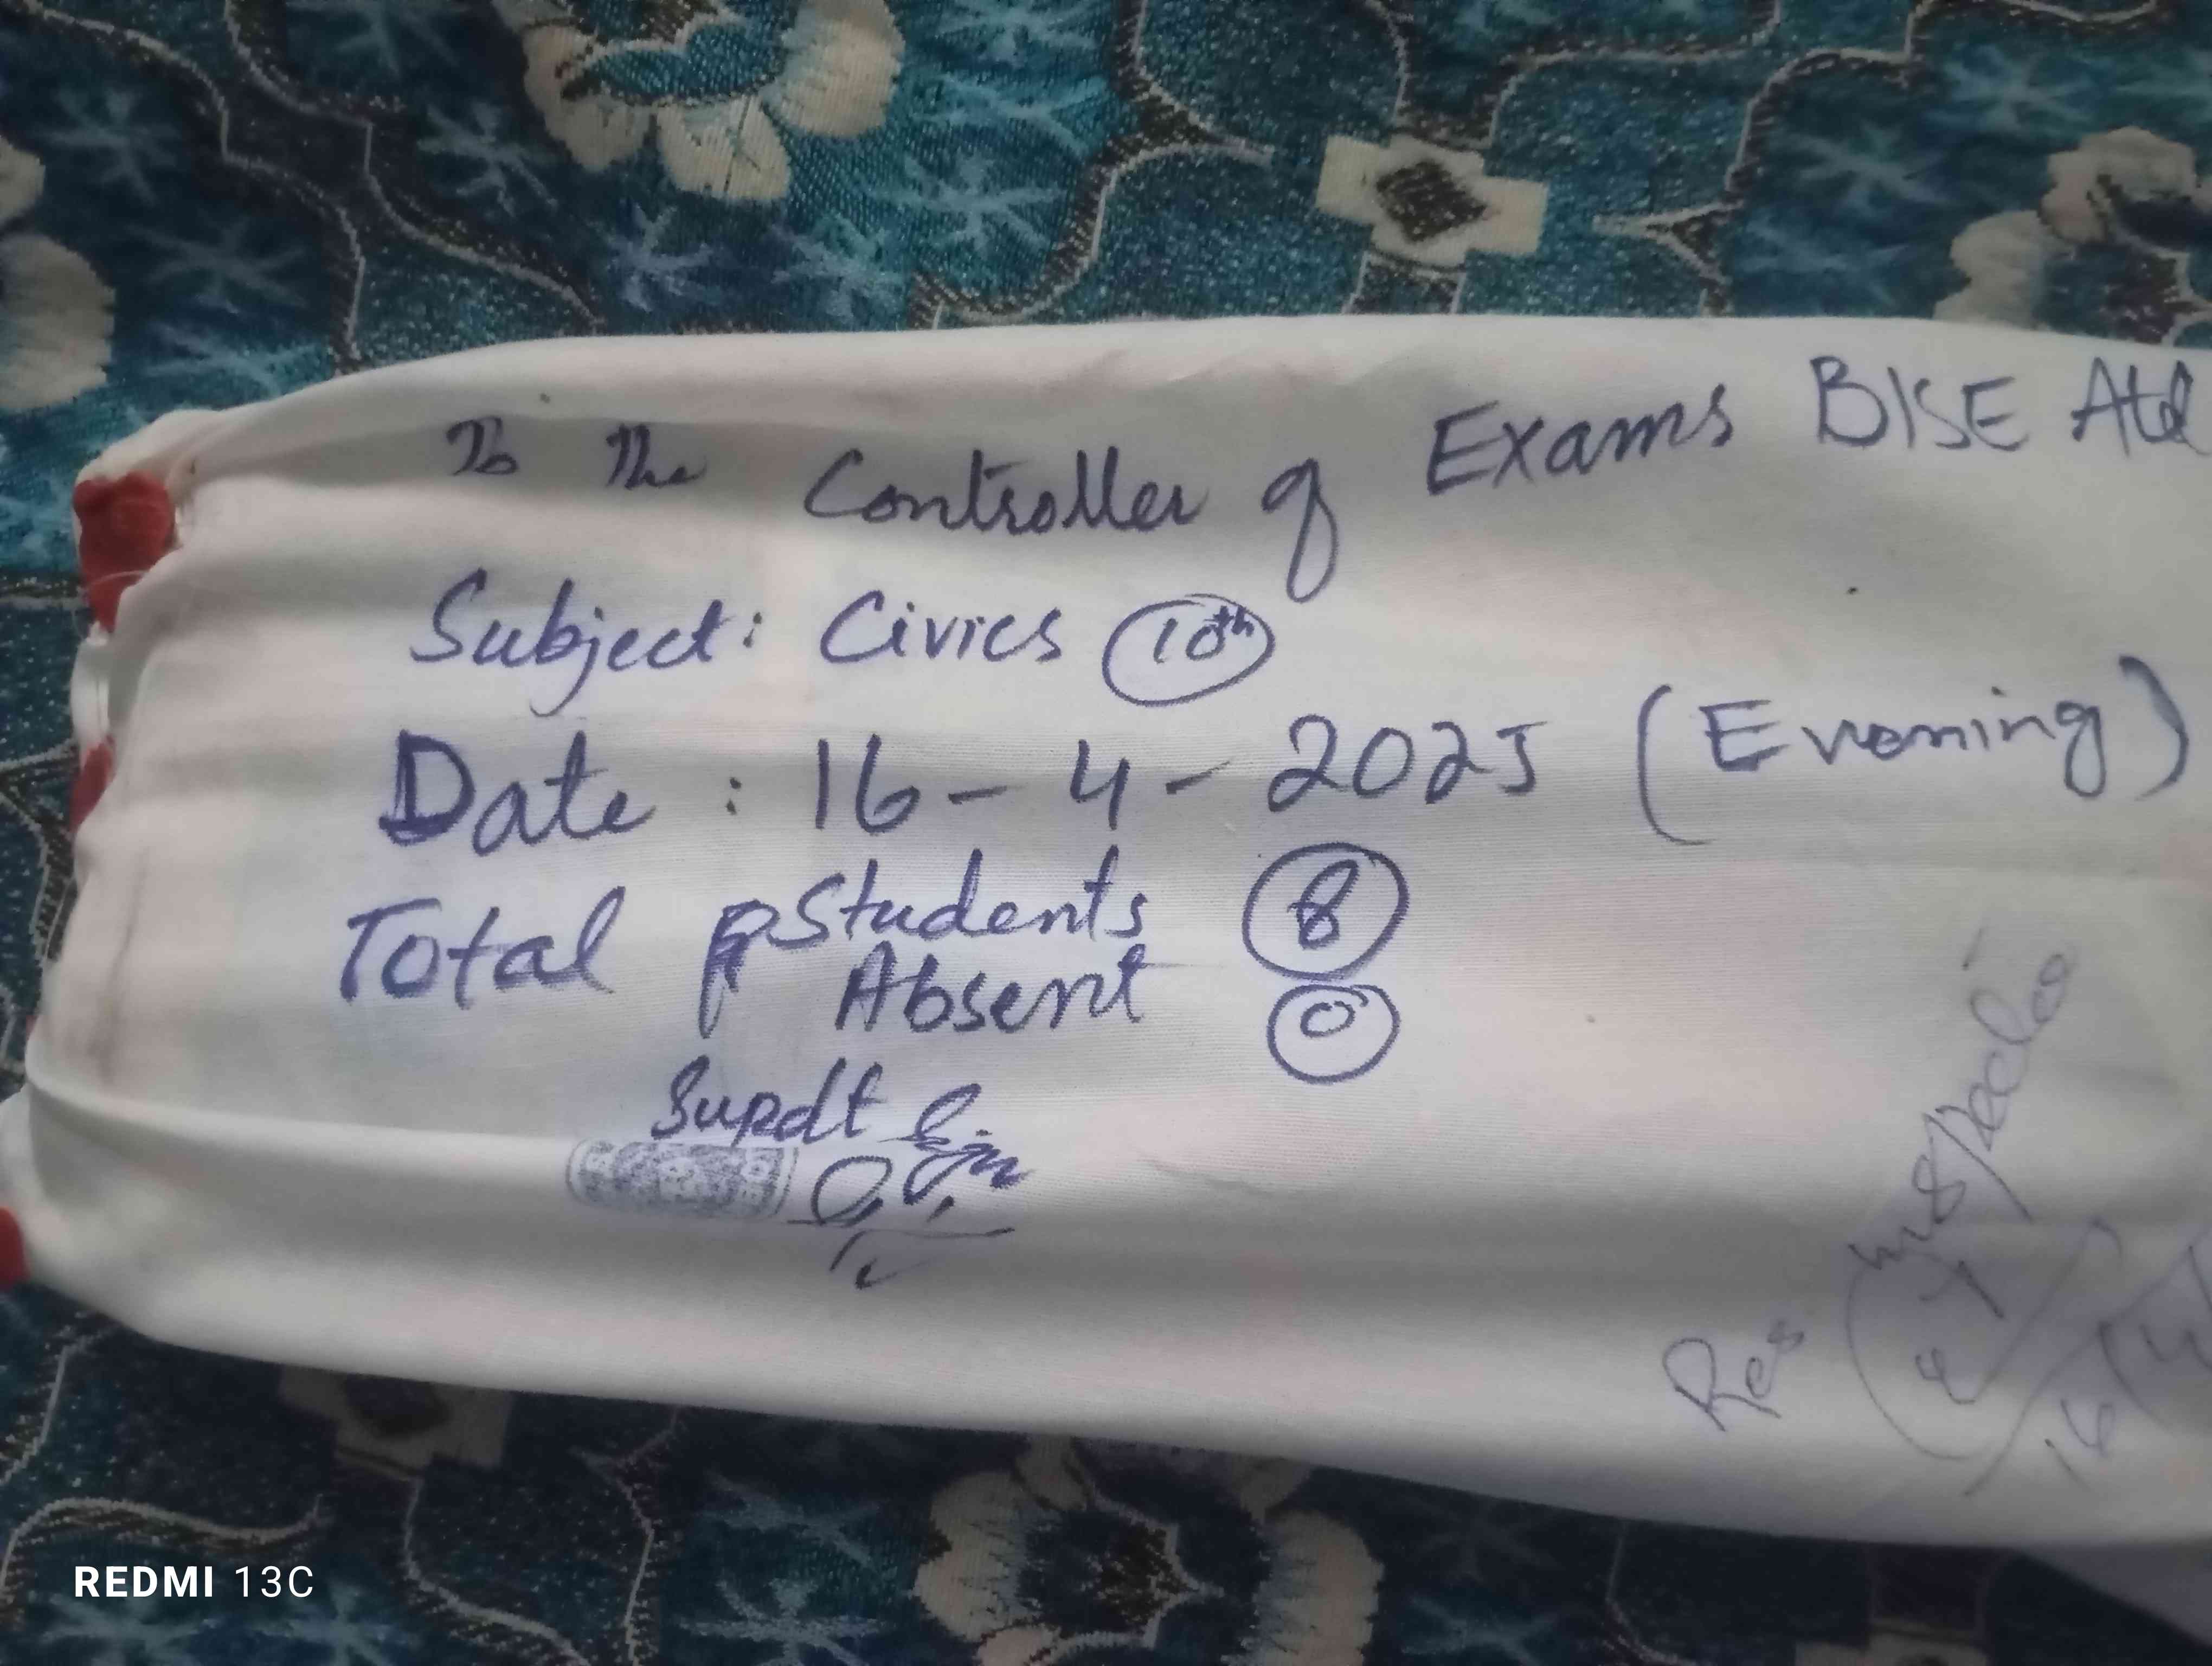 To The Controller of Exams BISE Atd
Subject: Civics 10th
Date : 16-4-2025 (Evening)
Total Students 8
Absent 0
Supdt
Res
16/4
REDMI 13C